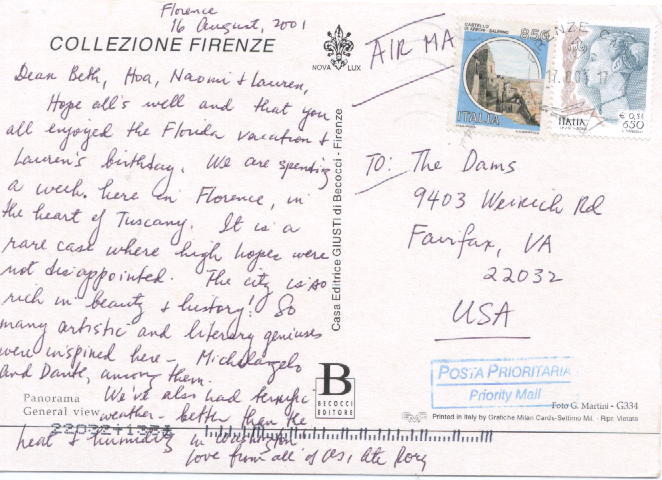 Florence
16 August, 2001
COLLEZIONE FIRENZE
NOVA LUX
Dear Beth, Hoa, Naomi & Lauren,
Hope all's well and that you
all enjoyed the Florida vacation &
Lauren's birthday. We are spending
a week here in Florence, in
the heart of Tuscany. It is a
rare case where high hopes were
not disappointed. The city is so
rich in beauty & history! So
many artistic and literary geniuses
were inspired here - Michelangelo
and Dante, among them.
We've also had terrific
weather - better than the
heat & humidity in Washington
Love from all of us,
Rory
Panorama
General view
22032+1
Casa Editrice GIUSTI di Becocci - Firenze
B
BECOCCI
EDITORE
AIR MA
CASTELLO
DI ARECHI - SALERNO
850
ITALIA
RENZE C
17.8.01 17
ITALIA
€ 0,34
650
TO: The Dams
9403 Weirich Rd
Fairfax, VA
22032
USA
POSTA PRIORITARIA
Priority Mail
Foto G. Martini - G334
Printed in Italy by Grafiche Milan Cards-Settimo Mil. - Ripr. Vietata